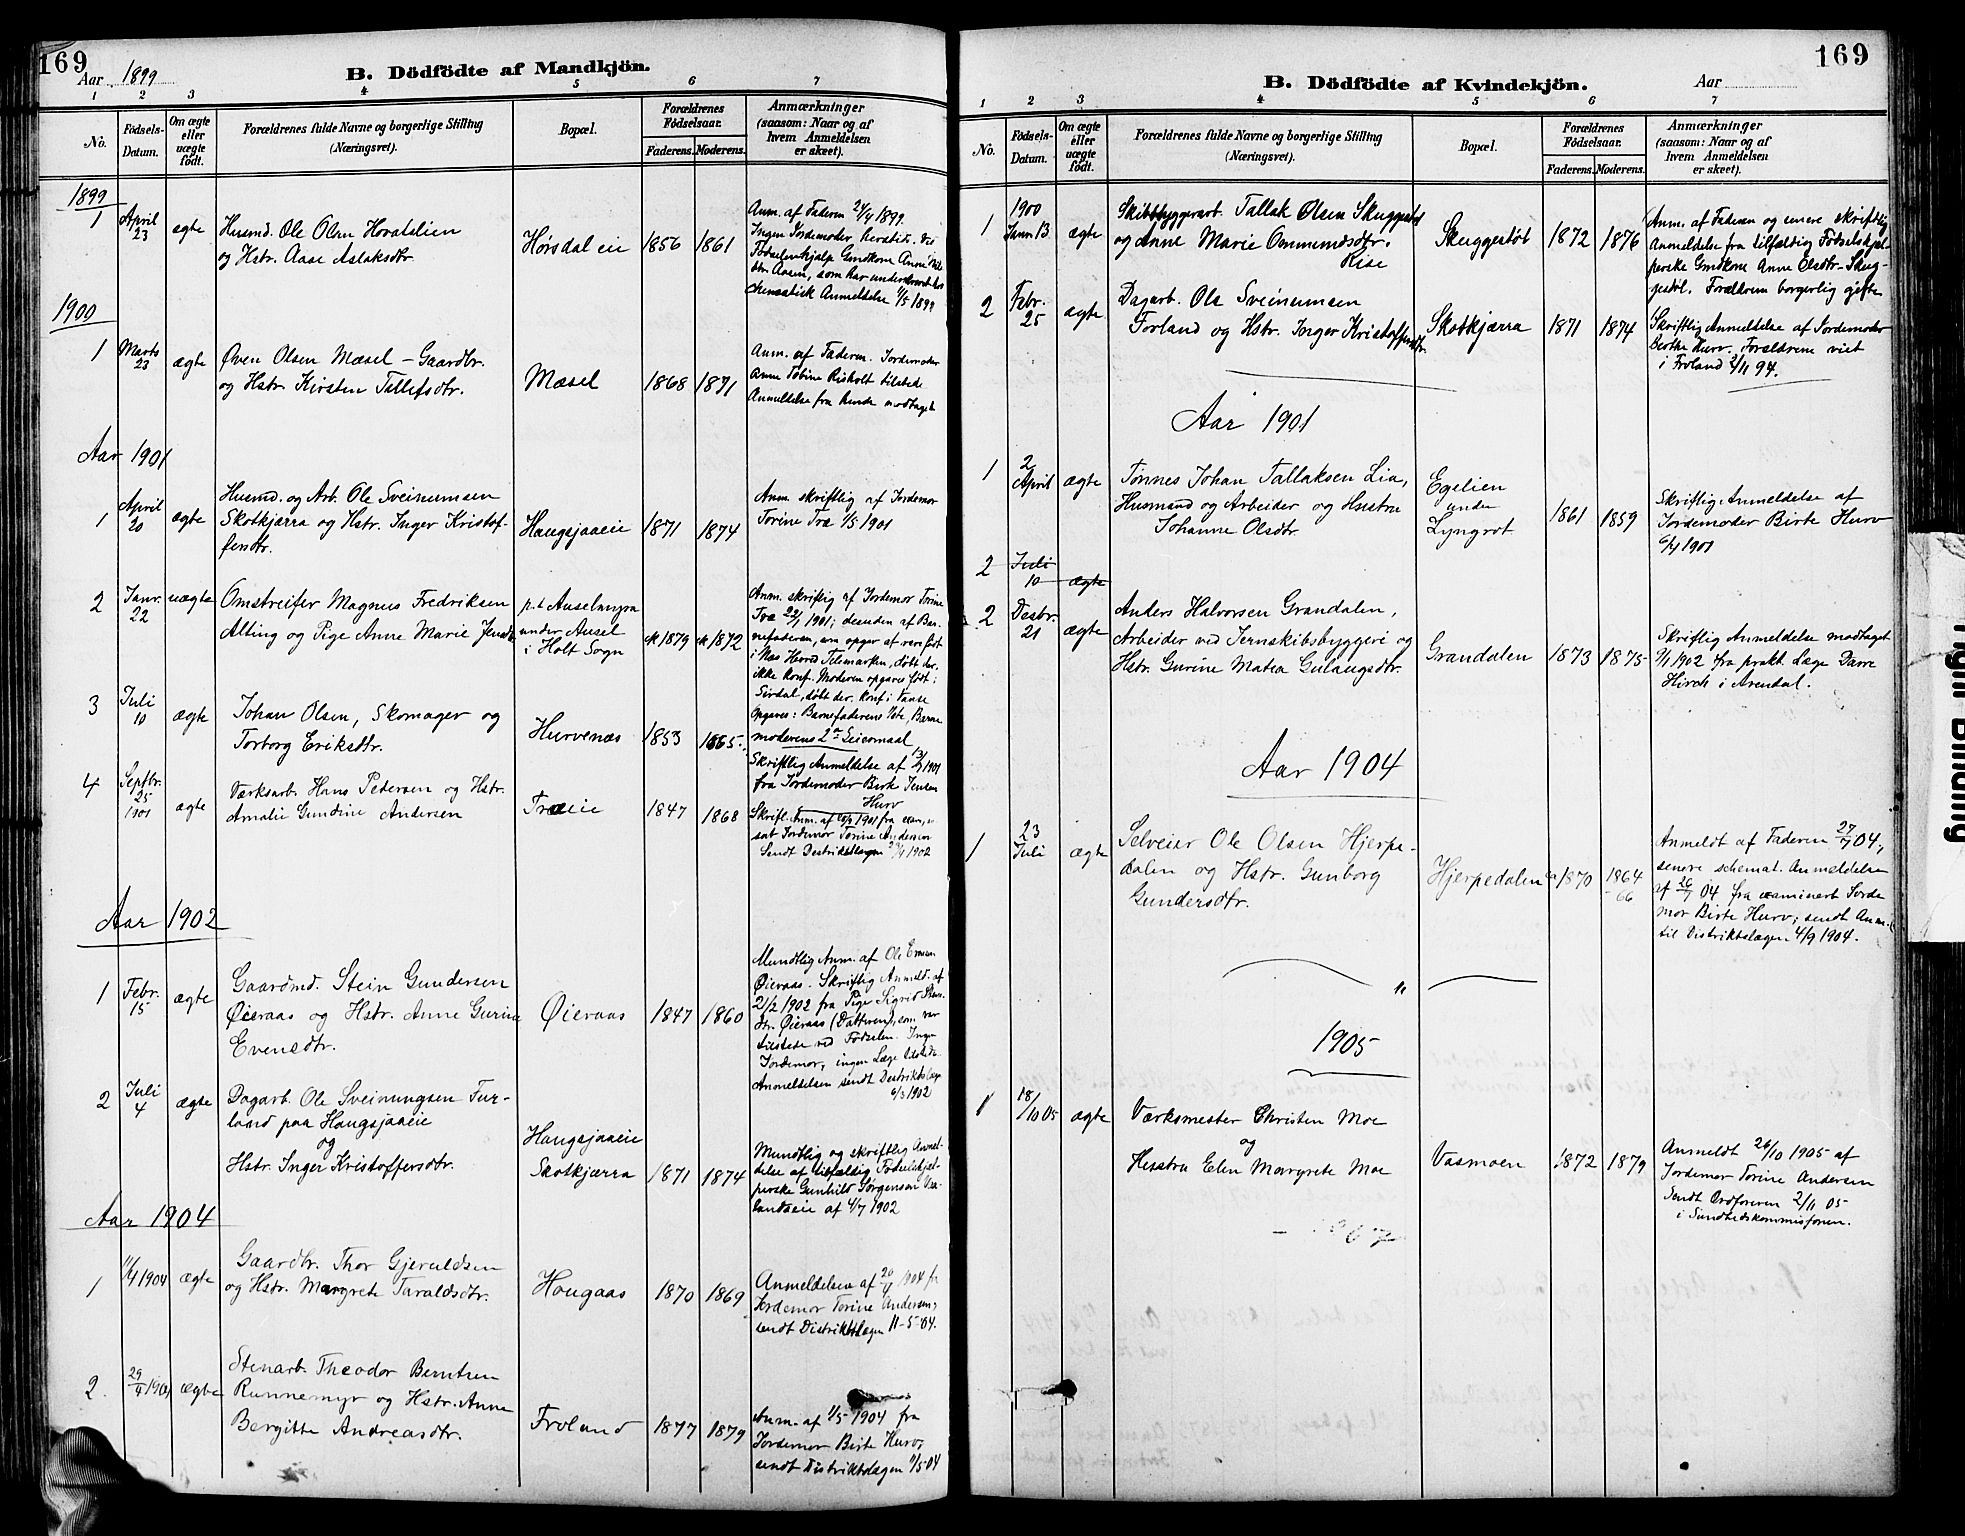 169
Aar 1899
B. Dödfödte af Mandkjön.
1 2 3 4 5 6 7
No.
Födsels-
Datum.
Om ægte
eller
uægte
födt.
Forældrenes fulde Navne og borgerlige Stilling
(Næringsvei).
Bopæl.
Forældrenes
Fødselsaar.
Faderens. Moderens.
Anmærkninger
(saasom: Naar og af
hvem Anmeldelsen
er skeet).
1899
1 April 23 ægte
Husmd. Ole Olsen
og Hstr. Aase Aslaksdtr.
Hørsdal eie 1856 1861
Anm. af Faderen 24/4 1899.
Ingen Jordemoder
Fødselenhjalp Gmdkone Anne
Aasen, som har
Anmeldelse 1/5 1899
1900
1 Marts 23 ægte
Øven Olsen Mæsel – Gaardbr.
og Hstr. Kirsten Tellefsdtr.
Mæsel 1868 1871
Anm. af Faderen. Jordemoder
Anne Tobine Risholt tilstede
Anmeldelse fra hende modtaget
Aar 1901
1 April 20 ægte
Husmd. og Arb. Ole Sveinumsen
Skotkjærra og Hstr. Inger Kristof-
fersdtr.
Haugsjaaeie 1871 1874
Anm. skriftlig af Jordemor
Torine Træ 1/5 1901
2 Janr. 22 uægte
Omstreifer Magnus Fredriksen
Alting og Pige Anne Marie Jensdtr
p.t. Auselmyra
under Ausel
i Holt Sogn
1879 1872
Anm. skriftlig af Jordemor Torine
Træ 22/1 1901; desuden af Bar-
nefaderen, som opger at være født
i Næs Herred Telemarken, døbt der.
ikke konf. Moderen opgaves født i
Sirdal, døbt der. konf. i Vanse
Opgaves: Barnefaderens 1ste, Barne
moderens 2det Leiermaal
3 Juli 10 ægte
Johan Olsen, Skomager og
Torborg Eriksdtr.
Hurvenæs 1853 1865.
Skriftlig Anmeldelse af 13/7 1901
fra Jordemoder Birte Jensen
Hurv
4 Septbr. 25 1901 ægte
Værksarb. Hans Petersen og Hstr.
Amalie Gundine Andersen
Træeie 1847 1868
Skriftl. Anm. af 1901 fra exam,
Jordemor Torine Andersen
Sendt Distriktslægen 1902
Aar 1902
1 Febr. 15 ægte
Gaardmd. Stein Gundersen
Øieraas og Hstr. Anne Gurine
Evensdtr.
Øieraas 1847 1860
Mundtlig Anm. af Ole
Øieraas. Skriftlig Anmeld. af
21/2 1902 fra Pige Sigrid
dtr. Øieraas (Datteren), som var
tilstede ved Fødselen. Ingen
Jordemor, ingen Læge tilstede.
Anmeldelsen sendt Distriktslæge
6/3 1902
2 Juli 4 ægte
Dagarb. Ole Sveinungsen Fur-
land paa Haugsjaaeie
og
Hstr. Inger Kristoffersdtr.
Haugsjaaeie
Skotkjærra 1871 1874
Mundtlig og skriftlig Anmel-
delse af tilfældig Fødselshjæl-
perske Gunhild Jørgensen
af 4/7 1902
Aar 1904
1 11/4 1904 ægte
Gaardbr. Thor Gjeruldsen
og Hstr. Margrete Taraldsdtr.
Hougaas 1870 1869
Anmeldelsen af 20/4 1904 fr
Jordemor Torine Andersen;
sendt Distriktslægen 11-5-04.
2. 29/4 1904 ægte
Stenarb. Theodor Berntsen
Runnemyr og Hstr. Anne
Bergitte Andreasdtr.
Froland 1877 1879
Anm. af 1/5 1904 fra
Jordemor Birte Hurv;
sendt Distriktslægen 11/5 04
169
B. Dödfödte af Kvindekjön.
Aar
1 2 3 4 5 6 7
No.
Födsels-
Datum.
Om ægte
eller
uægte
födt.
Forældrenes fulde Navne og borgerlige Stilling
(Næringsvei).
Bopæl.
Forældrenes
Fødselsaar.
Faderens. Moderens.
Anmærkninger
(saasom: Naar og af
hvem Anmeldelsen
er skeet).
1900
1 Janr. 13 ægte
Skibbyggerarb. Tallak Olsen Skuggestøl
og Anne Marie Ommundsdtr.
Rise
Skuggestøl 1872 1876
Anm. af Faderen og senere skriftlig
Anmeldelse fra tilfældig Fødselshjæl-
perske Gmdkone Anne Olsdtr. Skug-
gestøl. Forældrene borgerlig gifte
2 Febr. 25 ægte
Dagarb. Ole Sveinumsen
Forland og Hstr. Inger Kristoffersdtr.
Skotkjærra 1871 1874
Skriftlig Anmeldelse af Jordemoder
Berthe Hurv. Forældrene viet
i Froland 2/11 94.
Aar 1901
1 2 April ægte
Tønnes Johan Tallaksen Lia,
Husmand og Arbeider og Hustru
Johanne Olsdtr
Egelien
under
Lyngrot 1861 1859
Skriftlig Anmeldelse af
Jordemoder Birte Hurv
6/4 1901
2 Juli 10 ægte
2 Desbr. 21 ægte
Anders Halvorsen Grandalen,
Arbeider ved Jernskibsbyggeri og
Hstr. Gurine Matea Gulaugsdtr.
Grandalen 1873 1875
Skriftlig Anmeldelse modtaget
9/1 1902 fra prakt. Læge Dane
Hirch i Arendal.
Aar 1904
1 23 Juli ægte
Selveier Ole Olsen Hjerpe-
dalen og Hstr. Gunborg
Gundersdtr.
Hjerpedalen 1870 1864
66
Anmeldt af Faderen 27/7 04;
senere schemat. Anmeldelse
af 26/7 04 fra examinert Jorde
mor Birte Hurv; sendt Anm.
til Distriktslægen 4/9 1904.
"
1905
1 18/10 05 ægte
Værksmester Christen Moe
og
Hustru Elen Margrete Moe
Vasmoen 1872 1879
Anmeldt 26/10 1905 af
Jordemor Torine Andersen
Sendt Ordføreren 2/11 05
i Sundhedskommisjonen.